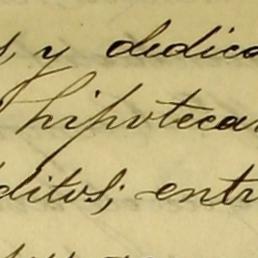 s, y dedica
hipotecar
ditos; entr